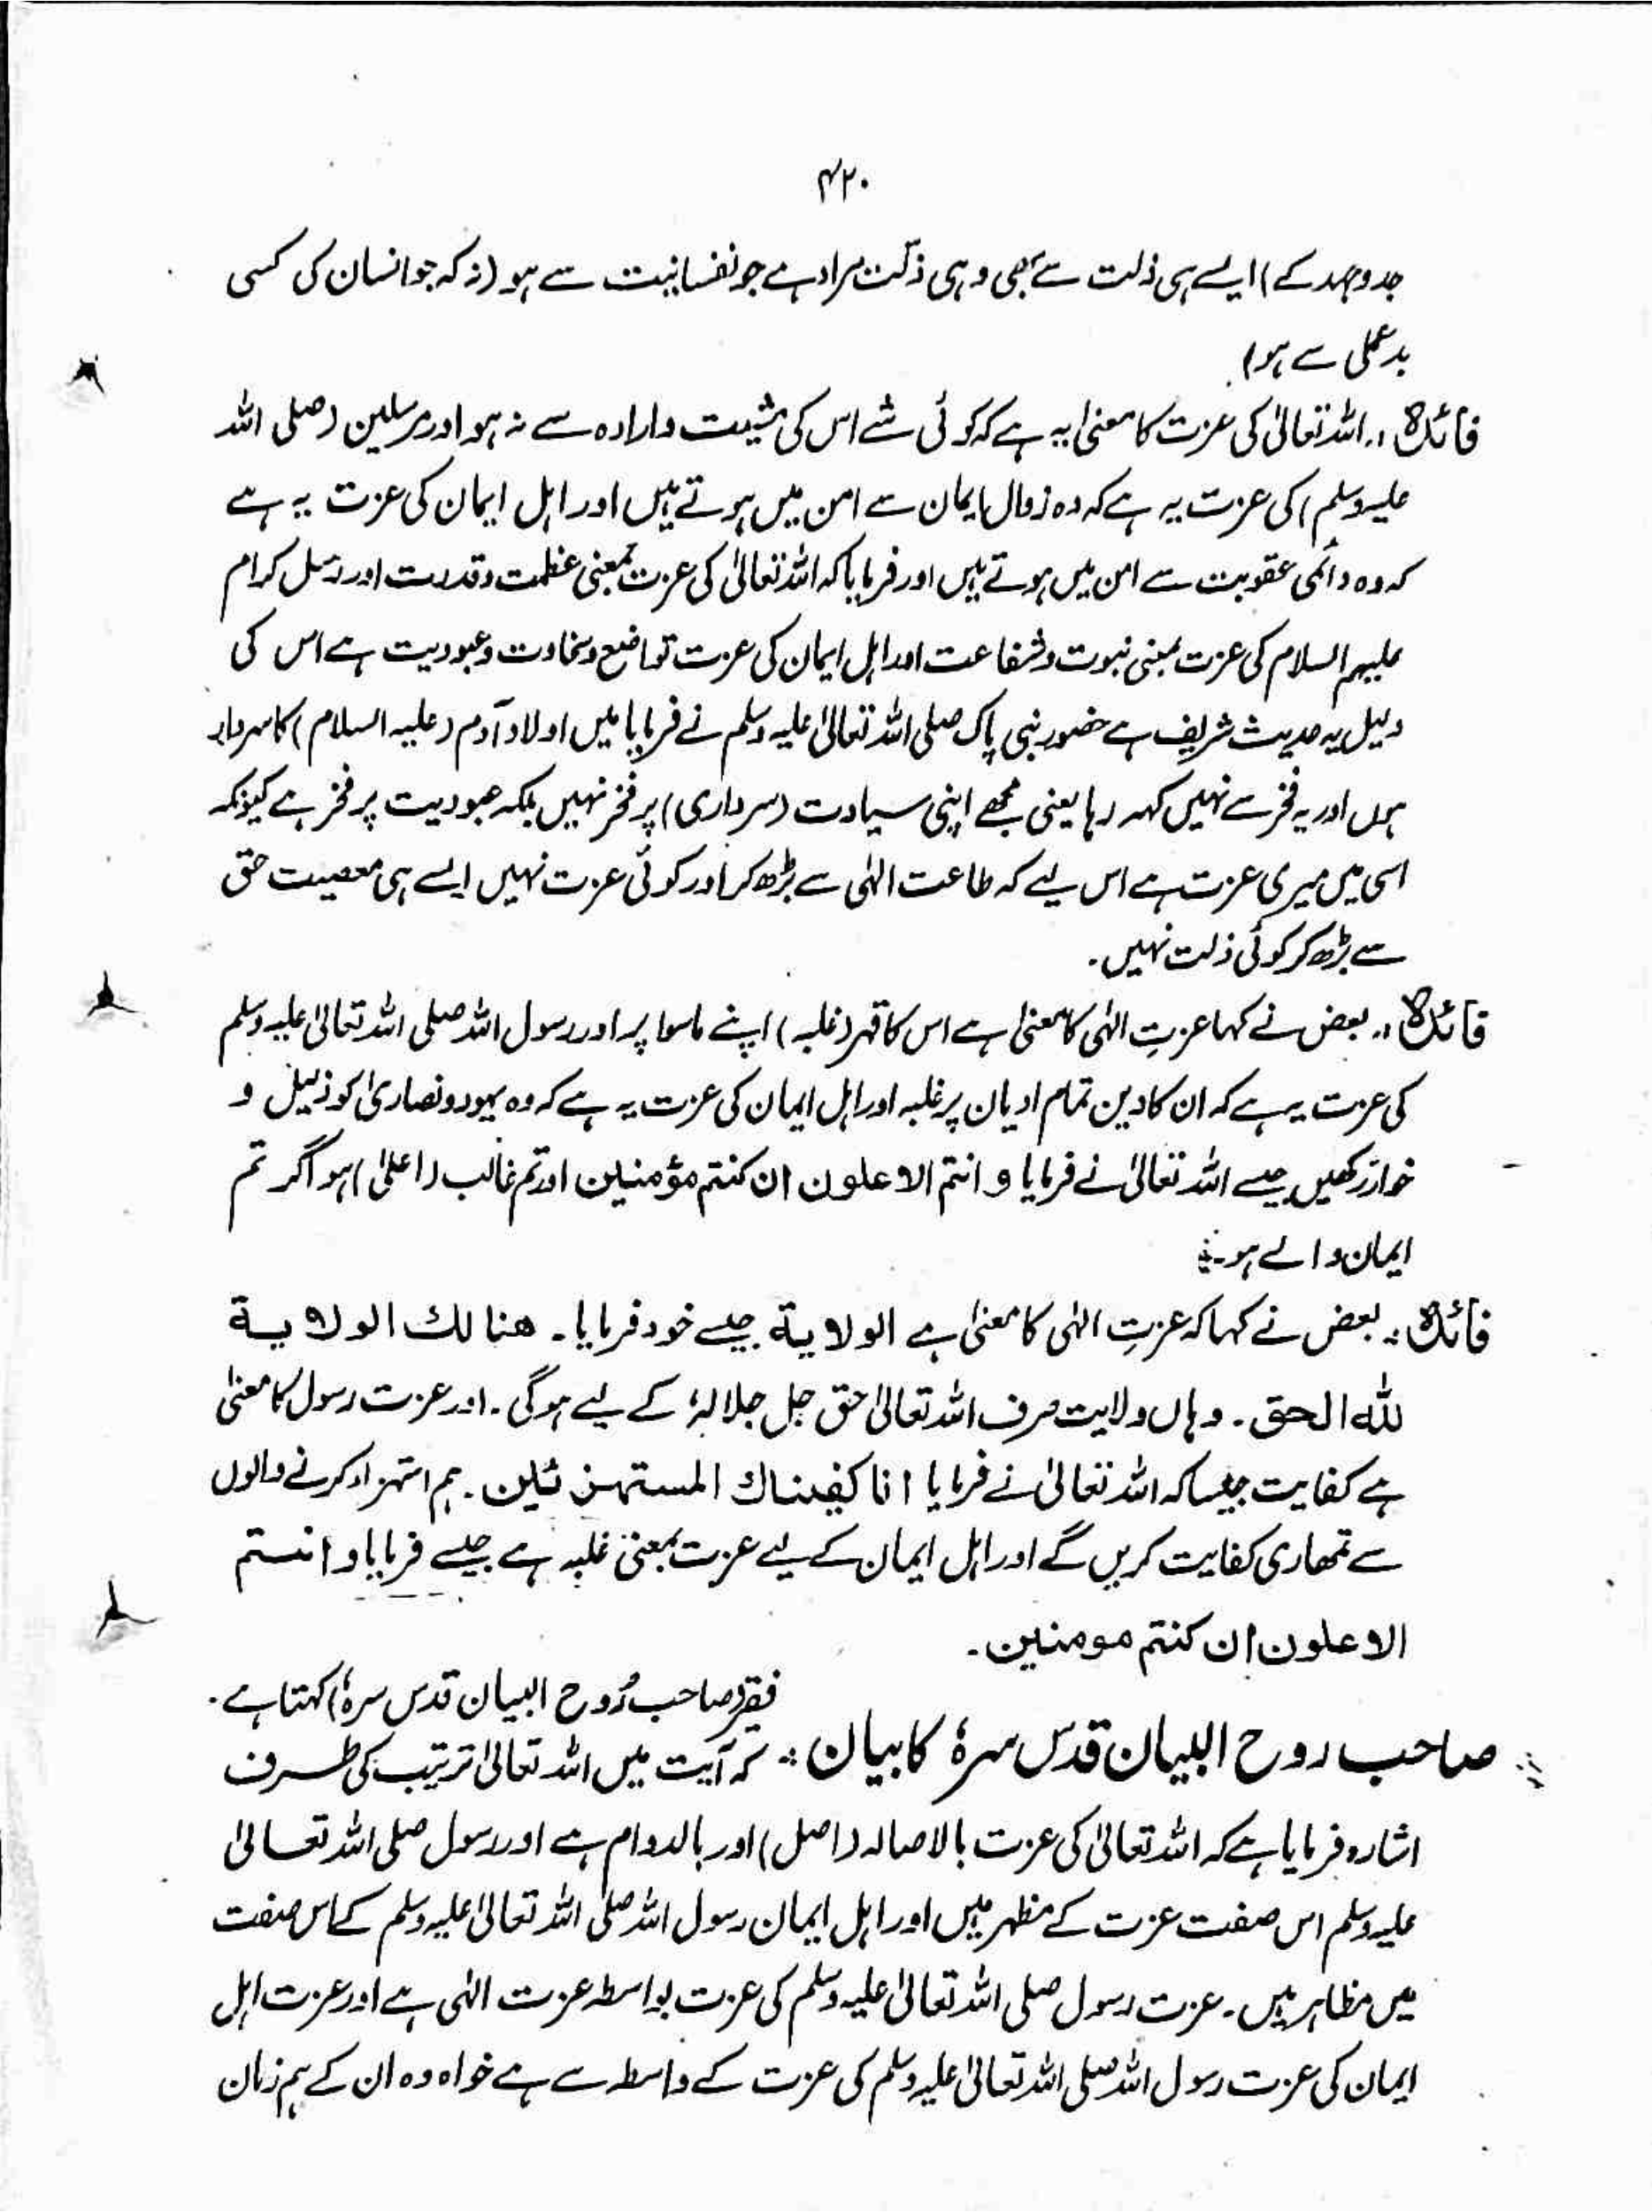 ۴۲۰
جدوجہد کے) ایسے ہی ذلت سے بھی وہی ذلّت مراد ہے جو نفسانیت سے ہو (نہ کہ جو انسان کی کسی
بدعملی سے ہو)
فائدہ :۔ اللہ تعالیٰ کی عزت کا معنیٰ یہ ہے کہ کوئی شے اس کی مشیت و ارادہ سے نہ ہو اور مرسلین (صلی اللہ
علیہ وسلم) کی عزت یہ ہے کہ وہ زوال ایمان سے امن میں ہوتے ہیں اور اہل ایمان کی عزت یہ ہے
کہ وہ دائمی عقوبت سے امن میں ہوتے ہیں اور فرمایا کہ اللہ تعالیٰ کی عزت بمعنی عظمت و قدرت اور رسل کرام
علیہم السلام کی عزت بمعنی نبوت و شفاعت اور اہل ایمان کی عزت تواضع و سخاوت و عبودیت ہے اس کی
دلیل یہ حدیث شریف ہے حضور نبی پاک صلی اللہ تعالیٰ علیہ وسلم نے فرمایا میں اولاد آدم (علیہ السلام) کا سردار
ہوں اور یہ فخر سے نہیں کہہ رہا یعنی مجھے اپنی سیادت (سرداری) پر فخر نہیں بلکہ عبودیت پر فخر ہے کیونکہ
اسی میں میری عزت ہے اس لیے کہ طاعت الٰہی سے بڑھ کر اور کوئی عزت نہیں ایسے ہی معصیت حق
سے بڑھ کر کوئی ذلت نہیں۔
فائدہ :۔ بعض نے کہا عزتِ الٰہی کا معنیٰ ہے اس کا قہر (غلبہ) اپنے ماسوا پر اور رسول اللہ صلی اللہ تعالیٰ علیہ وسلم
کی عزت یہ ہے کہ ان کا دین تمام ادیان پر غلبہ اور اہل ایمان کی عزت یہ ہے کہ وہ یہود و نصاریٰ کو ذلیل و
خوار رکھیں جیسے اللہ تعالیٰ نے فرمایا و انتم الاعلون ان کنتم مؤمنین اور تم غالب (اعلیٰ) ہو اگر تم
ایمان والے ہو۔
فائدہ :۔ بعض نے کہا کہ عزتِ الٰہی کا معنیٰ ہے الولایة جیسے خود فرمایا۔ ھنالك الولایة
للّٰہ الحق۔ وہاں ولایت صرف اللہ تعالیٰ حق جل جلالہٗ کے لیے ہوگی۔ اور عزت رسول کا معنیٰ
ہے کفایت جیسا کہ اللہ تعالیٰ نے فرمایا انا کفیناك المستھزئین۔ ہم استہزاء کرنے والوں
سے تمھاری کفایت کریں گے اور اہل ایمان کے لیے عزت بمعنیٰ غلبہ ہے جیسے فرمایا و انتم
الاعلون ان کنتم مومنین۔
فقیر (صاحب رُوح البیان قدس سرہٗ) کہتا ہے۔
صاحب روح البیان قدس سرہٗ کا بیان :۔ کہ آیت میں اللہ تعالیٰ ترتیب کی طرف
اشارہ فرمایا ہے کہ اللہ تعالیٰ کی عزت بالاصالہ (اصل) اور بالدوام ہے اور رسول صلی اللہ تعالیٰ
علیہ وسلم اس صفت عزت کے مظہر ہیں اور اہل ایمان رسول اللہ صلی اللہ تعالیٰ علیہ وسلم کے اس صفت
میں مظاہر ہیں۔ عزت رسول صلی اللہ تعالیٰ علیہ وسلم کی عزت بواسطہ عزت الٰہی ہے اور عزت اہل
ایمان کی عزت رسول اللہ صلی اللہ تعالیٰ علیہ وسلم کی عزت کے واسطہ سے ہے خواہ وہ ان کے ہم زمان